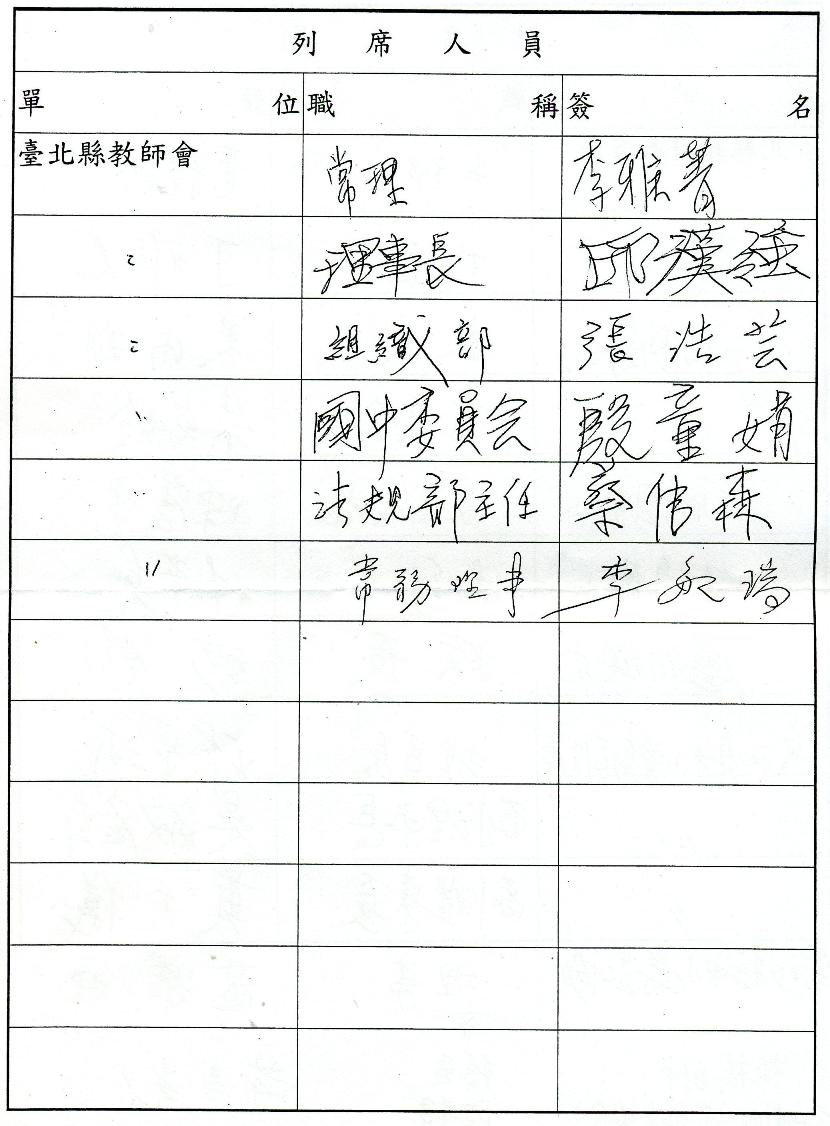 列席人員
單位 職稱 簽名
臺北縣教師會 常理 李雅菁
〃 理事長 邱漢強
〃 組織部 張浩芸
〃 國中委員会 殷童娟
〃 法規部主任 桑偉森
〃 常務理事 李 瑞